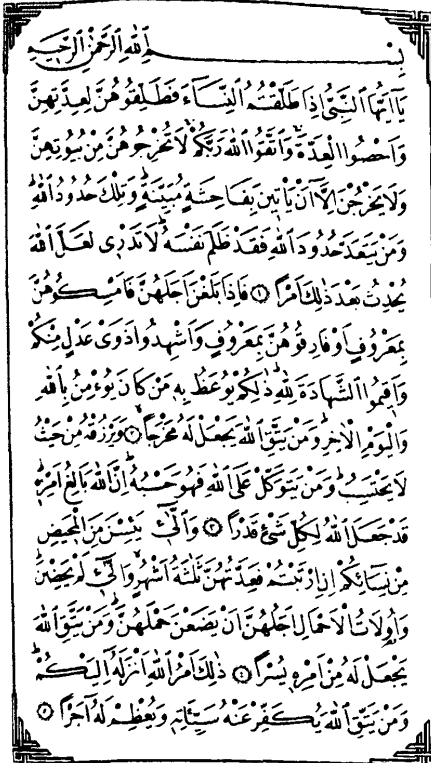 بِسْمِ اللهِ الرَّحْمٰنِ الرَّحِيمِ
يَآ اَيُّهَا النَّبِيُّ اِذَا طَلَّقْتُمُ النِّسَآءَ فَطَلِّقُوهُنَّ لِعِدَّتِهِنَّ
وَاَحْصُوا الْعِدَّةَ وَاتَّقُوا اللهَ رَبَّكُمْ لَا تُخْرِجُوهُنَّ مِنْ بُيُوتِهِنَّ
وَلَا يَخْرُجْنَ اِلَّآ اَنْ يَأْتِينَ بِفَاحِشَةٍ مُبَيِّنَةٍ وَتِلْكَ حُدُودُ اللهِ
وَمَنْ يَتَعَدَّ حُدُودَ اللهِ فَقَدْ ظَلَمَ نَفْسَهُ لَا تَدْرِى لَعَلَّ اللهَ
يُحْدِثُ بَعْدَ ذٰلِكَ اَمْرًا ١ فَاِذَا بَلَغْنَ اَجَلَهُنَّ فَاَمْسِكُوهُنَّ
بِمَعْرُوفٍ اَوْ فَارِقُوهُنَّ بِمَعْرُوفٍ وَاَشْهِدُوا ذَوَىْ عَدْلٍ مِنْكُمْ
وَاَقِيمُوا الشَّهَادَةَ لِلهِ ذٰلِكُمْ يُوعَظُ بِهِ مَنْ كَانَ يُؤْمِنُ بِاللهِ
وَالْيَوْمِ الْاٰخِرِ وَمَنْ يَتَّقِ اللهَ يَجْعَلْ لَهُ مَخْرَجًا ٢ وَيَرْزُقْهُ مِنْ حَيْثُ
لَا يَحْتَسِبُ وَمَنْ يَتَوَكَّلْ عَلَى اللهِ فَهُوَ حَسْبُهُ اِنَّ اللهَ بَالِغُ اَمْرِهِ
قَدْ جَعَلَ اللهُ لِكُلِّ شَىْءٍ قَدْرًا ٣ وَالّٰٓئِ يَئِسْنَ مِنَ الْمَحِيضِ
مِنْ نِسَآئِكُمْ اِنِ ارْتَبْتُمْ فَعِدَّتُهُنَّ ثَلٰثَةُ اَشْهُرٍ وَالّٰٓئِ لَمْ يَحِضْنَ
وَاُولَاتُ الْاَحْمَالِ اَجَلُهُنَّ اَنْ يَضَعْنَ حَمْلَهُنَّ وَمَنْ يَتَّقِ اللهَ
يَجْعَلْ لَهُ مِنْ اَمْرِهِ يُسْرًا ٤ ذٰلِكَ اَمْرُ اللهِ اَنْزَلَهُ اِلَيْكُمْ
وَمَنْ يَتَّقِ اللهَ يُكَفِّرْ عَنْهُ سَيِّـَٔاتِهِ وَيُعْظِمْ لَهُ اَجْرًا ٥